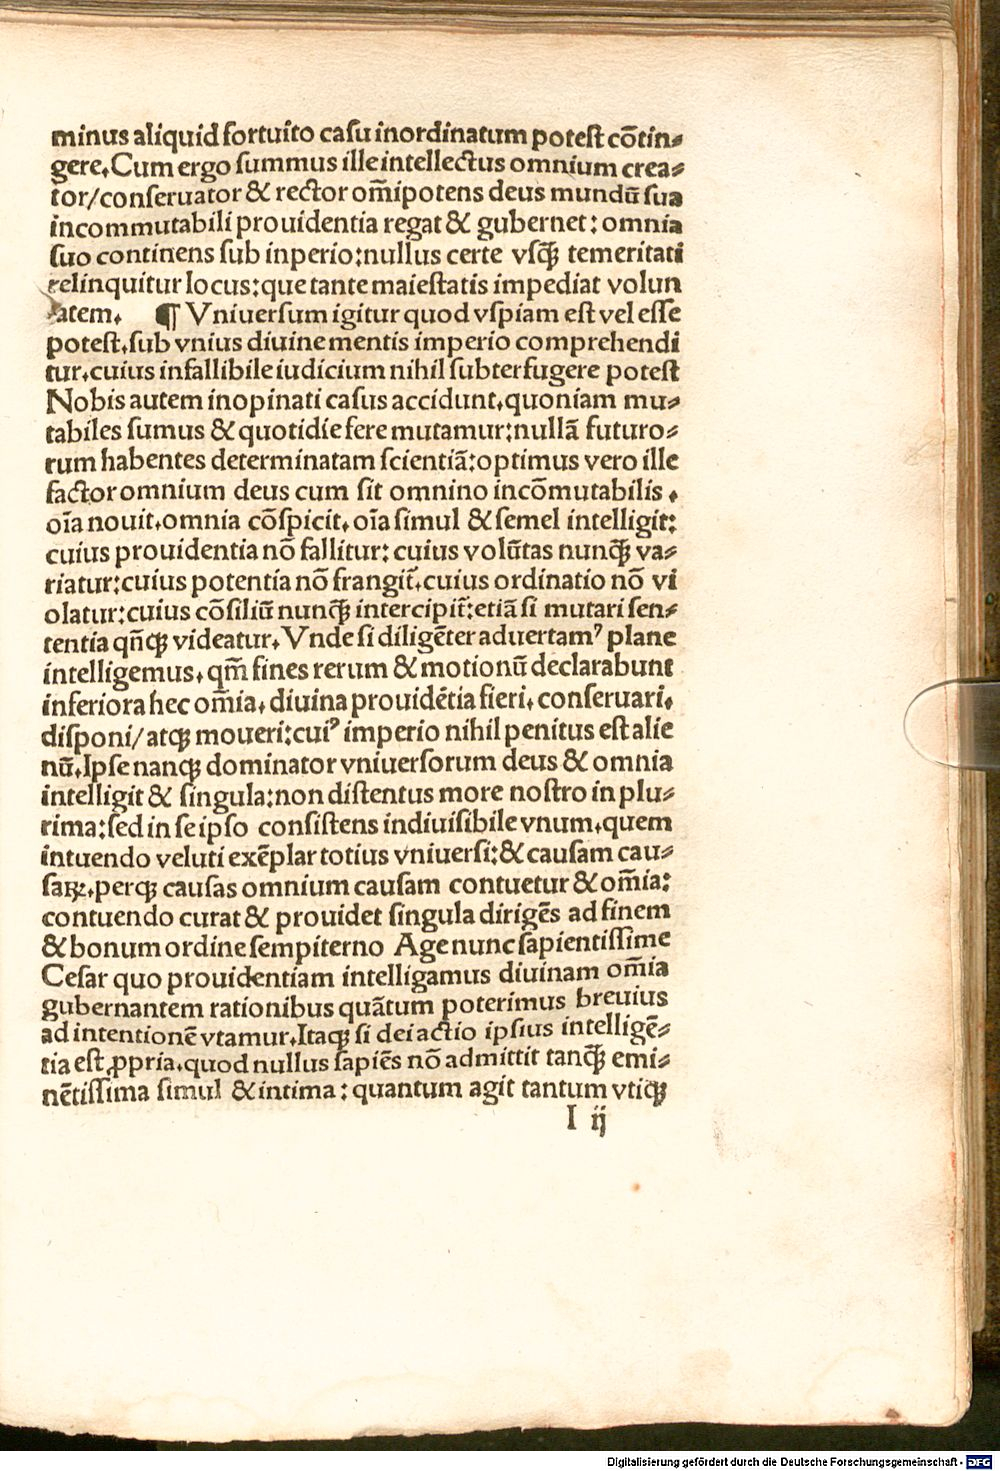 minus aliquid fortuito casu inordinatum potest cōtin⸗
gere. Cum ergo summus ille intellectus omnium crea⸗
tor/conseruator & rector om̄ipotens deus mundū sua
incommutabili prouidentia regat & gubernet: omnia
suo continens sub inperio: nullus certe vsꝙ̄ temeritati
relinquitur locus: que tante maiestatis impediat volun
tatem. ¶ Vniuersum igitur quod vspiam est vel esse
potest. sub vnius diuine mentis imperio comprehendi
tur. cuius infallibile iudicium nihil subterfugere potest
Nobis autem inopinati casus accidunt. quoniam mu⸗
tabiles sumus & quotidie fere mutamur: nullā futuro⸗
rum habentes determinatam scientiā: optimus vero ille
factor omnium deus cum sit omnino incōmutabilis .
oīa nouit. omnia cōspicit. oīa simul & semel intelligit:
cuius prouidentia nō fallitur: cuius volūtas nunꝙ̄ va⸗
riatur: cuius potentia nō frangit᷑. cuius ordinatio nō vi
olatur: cuius cōsiliū nunꝙ̄ intercipit᷑: etiā si mutari sen⸗
tentia qn̄ꝙ videatur. Vnde si diligēter aduertamꝰ plane
intelligemus. qm̄ fines rerum & motionū declarabunt
inferiora hec om̄ia. diuina prouidētia fieri. conseruari.
disponi/ atqꝫ moueri: cuiꝰ imperio nihil penitus est alie
nū. Ipse nanqꝫ dominator vniuersorum deus & omnia
intelligit & singula: non distentus more nostro in plu⸗
rima: sed in se ipso consistens indiuisibile vnum. quem
intuendo veluti exēplar totius vniuersi: & causam cau⸗
saꝝ. perqꝫ causas omnium causam contuetur & om̄ia:
contuendo curat & prouidet singula dirigēs ad finem
& bonum ordine sempiterno Age nunc sapientissime
Cesar quo prouidentiam intelligamus diuinam om̄ia
gubernantem rationibus quātum poterimus breuius
ad intentionē vtamur. Itaqꝫ si dei actio ipsius intelligē⸗
tia est ꝓpria. quod nullus sapiēs nō admittit tanꝙ̄ emi⸗
nētissima simul & intima: quantum agit tantum vtiqꝫ
I ij
Digitalisierung gefördert durch die Deutsche Forschungsgemeinschaft - DFG